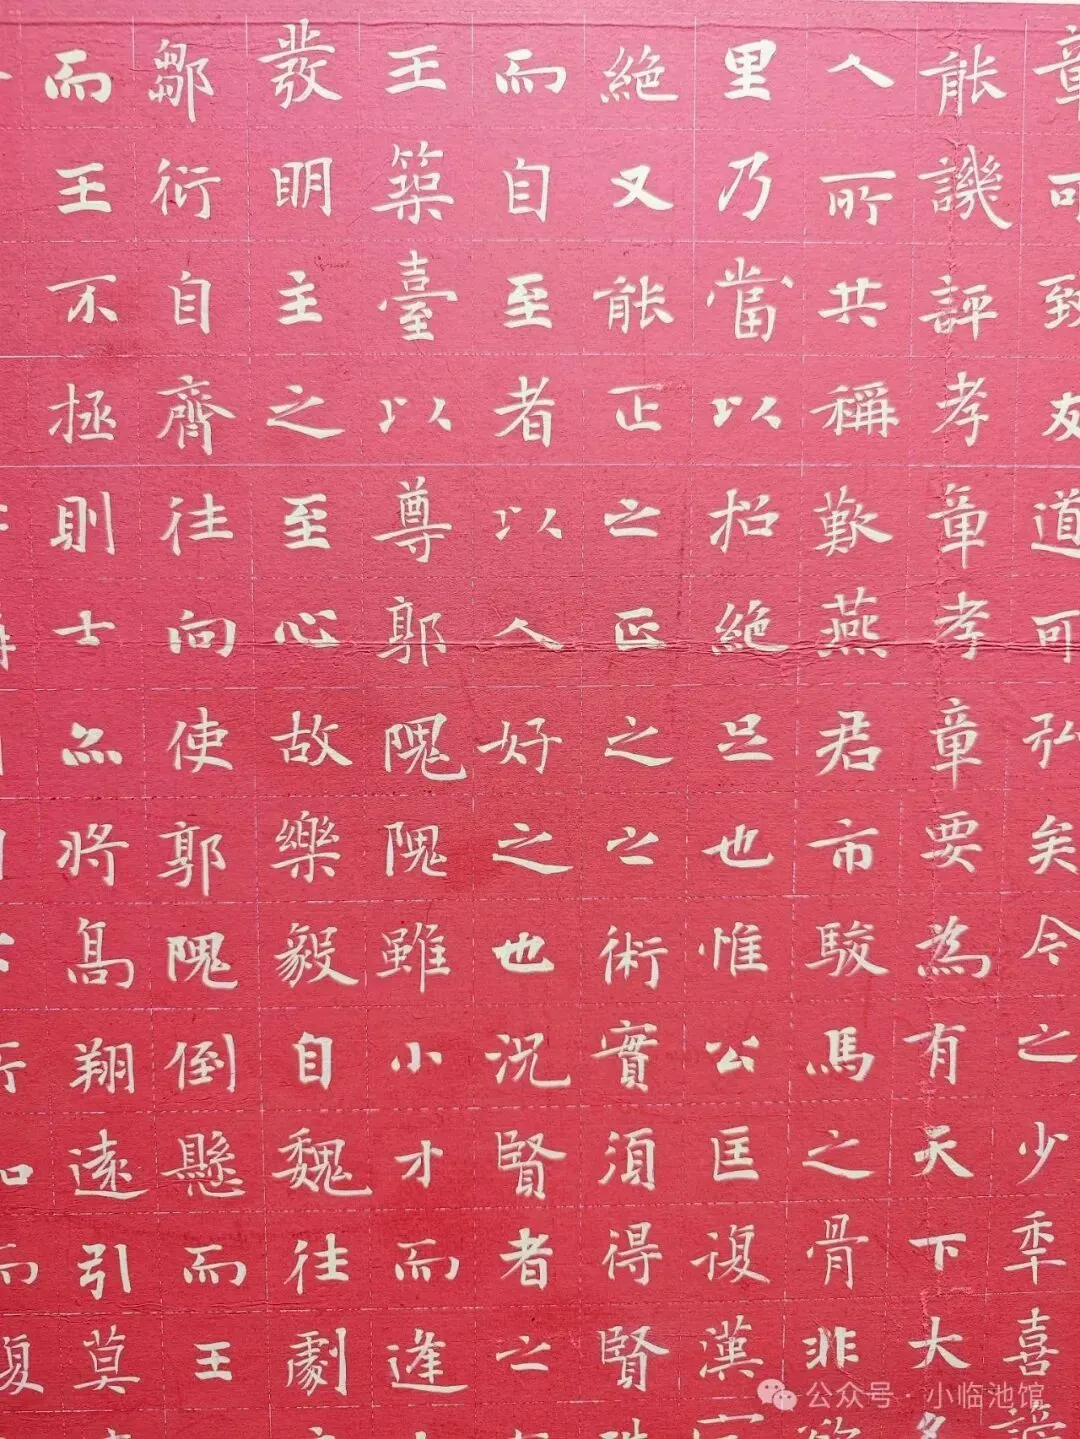 章可致友道可弘矣今之少年喜謗
能譏評孝章孝章要為有天下大名
人所共稱歎燕君市駿馬之骨非欲
里乃當以招絕足也惟公匡復漢
絕又能正之正之之術實須得賢
而自至者以人好之也況賢者之
王築臺以尊郭隗隗雖小才而逢
發明主之至心故樂毅自魏往劇
鄒衍自齊往向使郭隗倒懸而王
而王不拯則士亦將高翔遠引莫
公众号·小临池馆